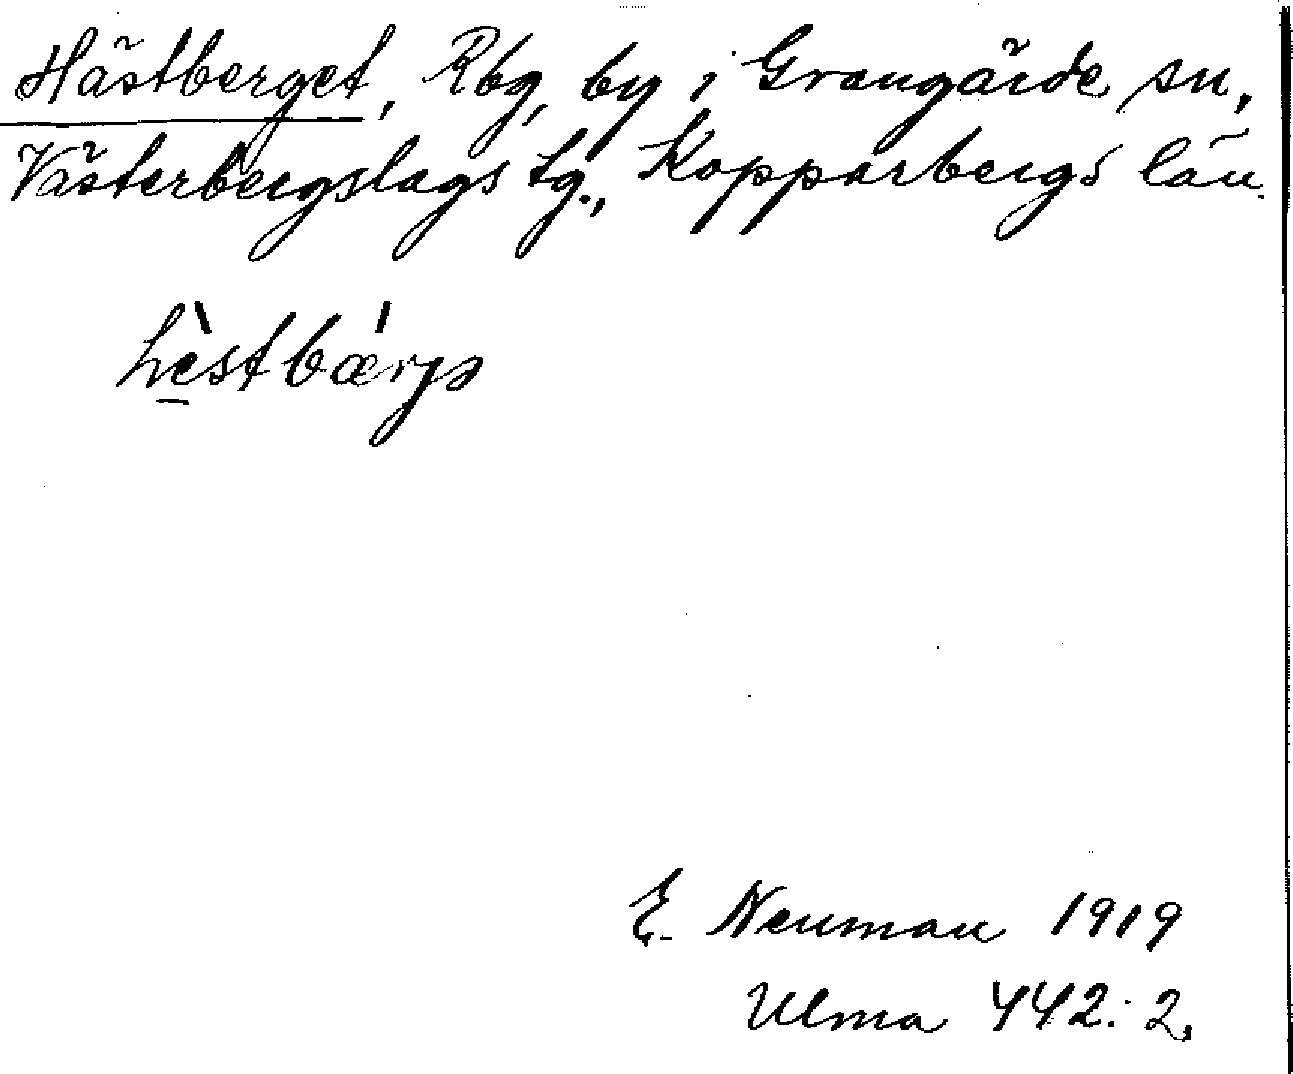 Hästberget, Rbg, by i Grangärde sn,
Västerbergslags tg., Kopparbergs län.
hèstbǽrjə
E. Neuman 1919
Ulma 442:2,